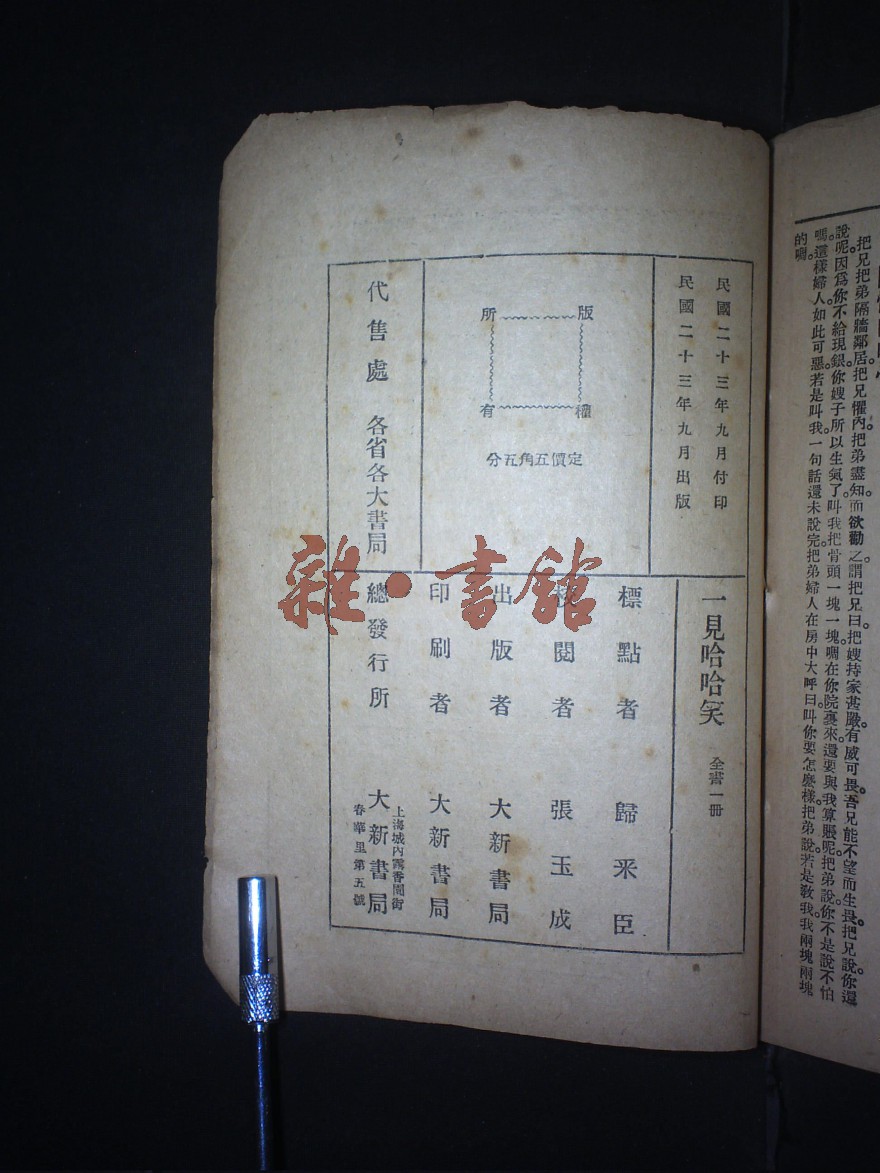 把兄把弟隔牆鄰居。把兄懼內。把弟盡知。而欲勸之。謂把兄曰。把嫂持家甚嚴。有威可畏。吾兄能不望而生畏。把兄說。你還
說呢。因爲你不給現銀。你嫂子所以生氣了。叫我把骨頭一塊一塊。啁在你院裏來。還要與我算賬呢。把弟說。你不是說不怕
嗎。這樣婦人如此可惡。若是叫我一句話還未說完。把弟婦人在房中大呼曰。叫你要怎麽樣。把弟說。若是敎我。我兩塊兩塊
的啁。
民國二十三年九月付印
民國二十三年九月出版
版權所有
定價五角五分
代售處 各省各大書局
一見哈哈笑 全書一冊
標點者 歸釆臣
校閱者 張玉成
出版者 大新書局
印刷者 大新書局
總發行所 大新書局
上海城內露香園街
春華里第五號
雜·書館